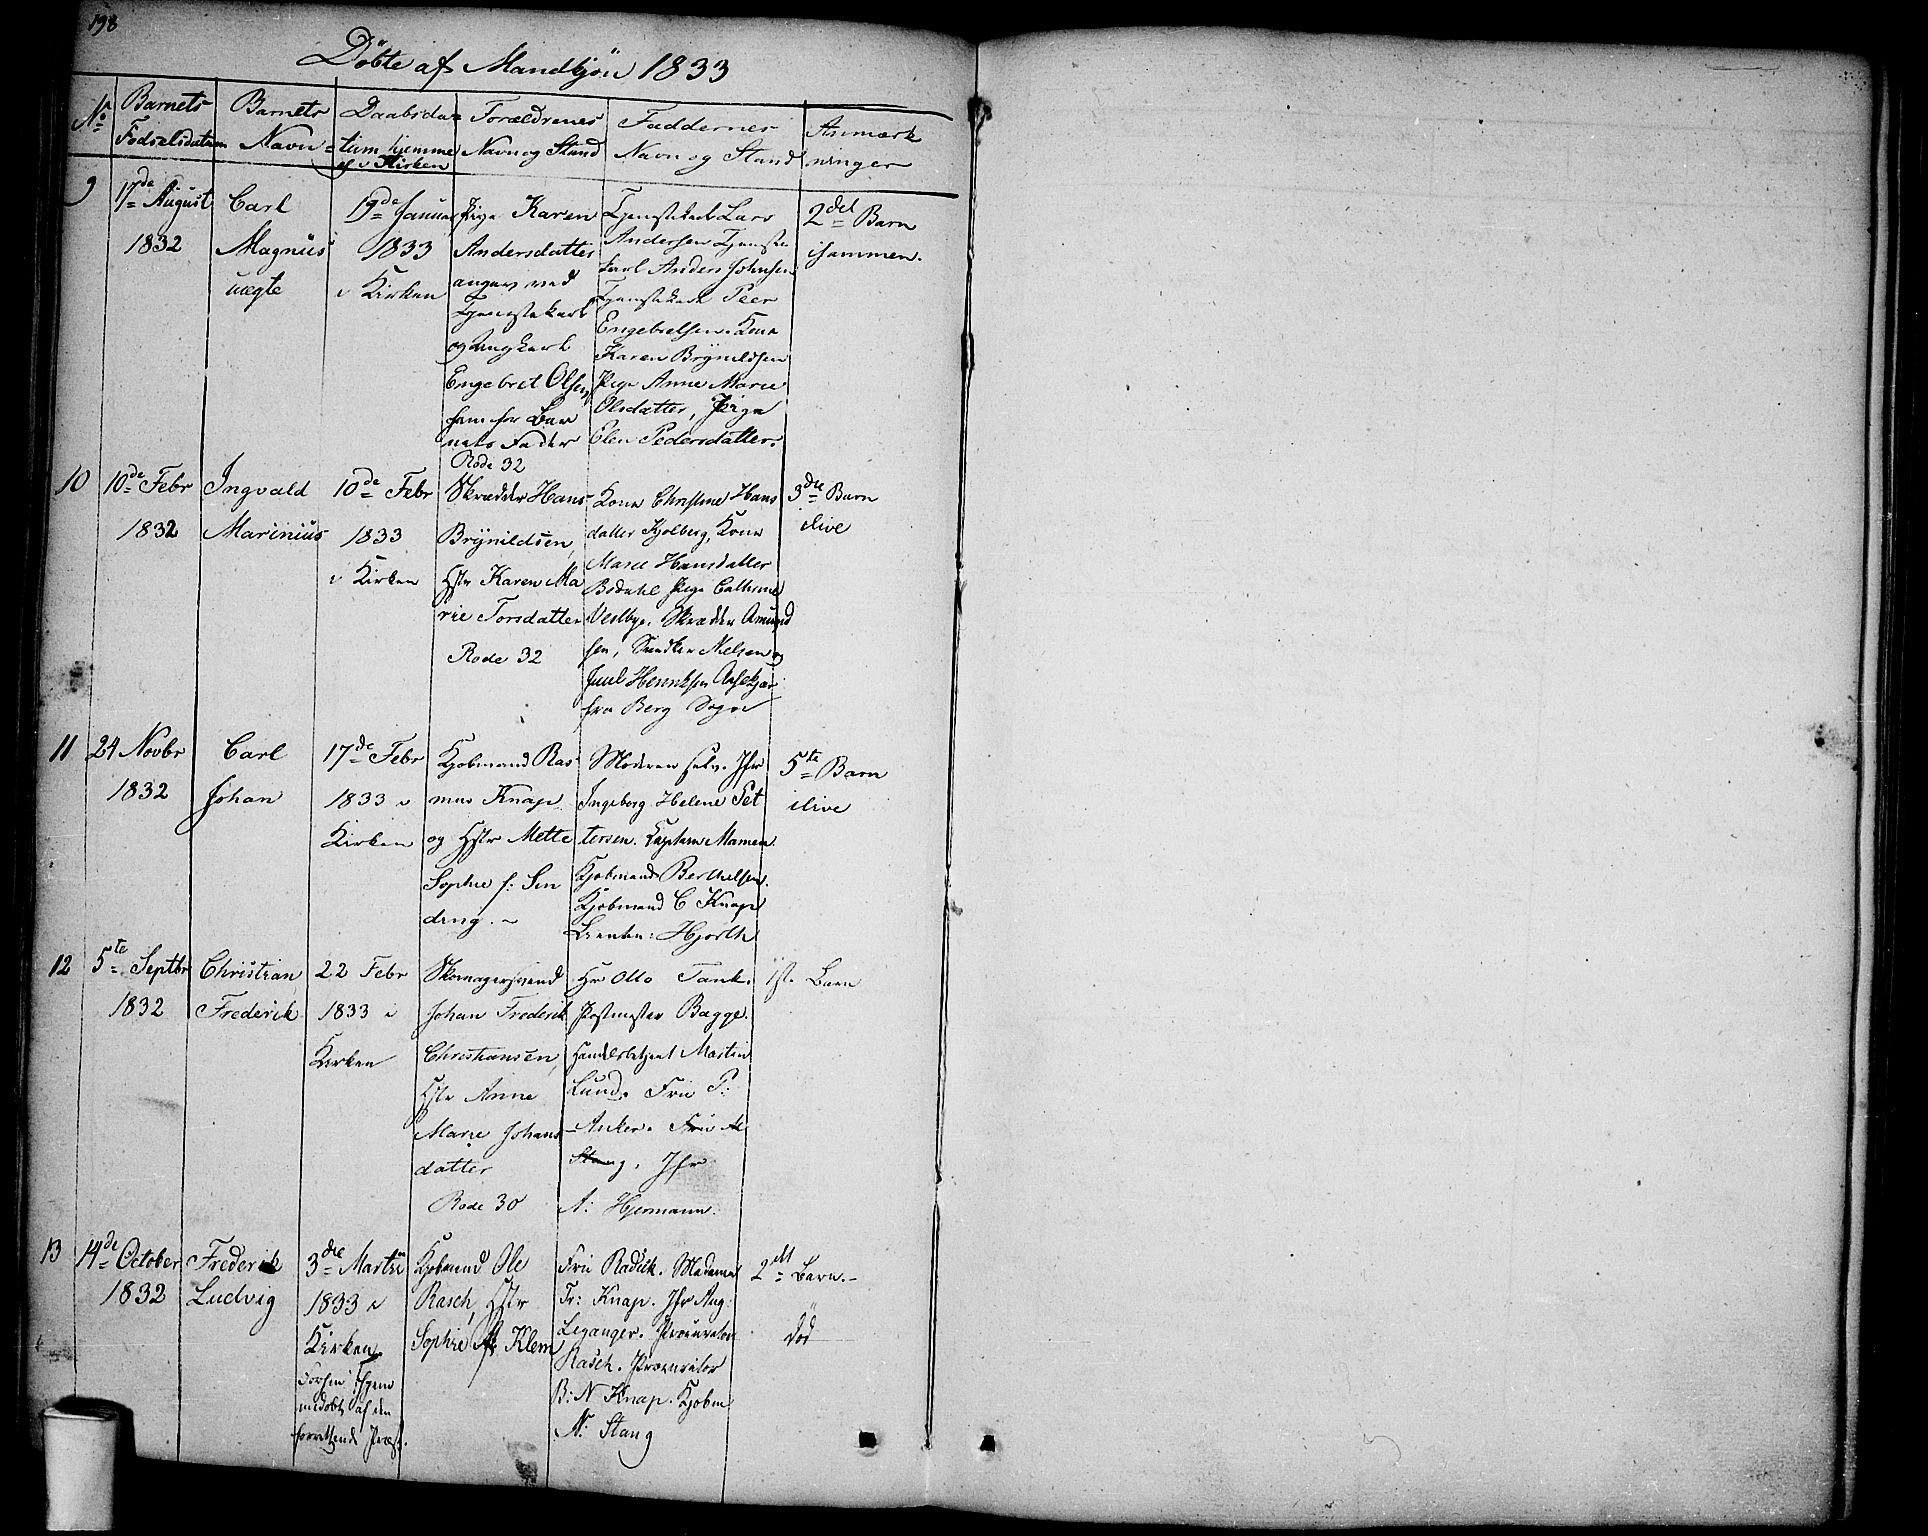 198
Döbte af Mandkjön 1833
No
Barnets Fødselsdatum
Barnets Navn
Daabsdatum hjemme el. i Kirken
Forældrenes Navn og Stand
Faddernes Navn og Stand
Anmærkninger
9
17de August
1832
Carl
Magnus
uægte
19de Januar
1833
i Kirken
Pige Karen
Andersdatter
angav ved
Tjenstekarl
og Ungkarl
Engebret Olsen
som for Bar
nets Fader
Rode 32
Tjenstekarl Lars
Andersen Tjenste
karl Anders Johnsen
Tjenstekarl Peer
Engebretsen. Kone
Karen Brynildsen
Pige Anne Marie
Olsdatter, Pige
Elen Pedersdatter.
2det Barn
isammen.
10
10de Febr
1832
Ingvald
Marinius
10de Febr
1833
i Kirken
Skrædder Hans
Brynildsen,
Hstr Karen Ma
rie Torsdatter
Rode 32
Kone Christine Hans
datter Kjolberg, Kone
Marie Hansdatter
Bödahl Pige Cathrine
Vestbye. Skrædder Amund
sen, Snedker Nielsen og
Juul Henriksen
fra Berg Sogn
3die Barn
ilive
11
24 Novbr
1832
Carl
Johan
17de Febr
1833 i
Kirken
Kjobmand Ras
mus Knap
og Hstr Mette
Sophie f: Sin
ding. ~
Moderen selv. Jfr
Ingeborg Helene Pet
tersen. Captein Mamen
Kjobmand Berthelsen.
Kjobmand C Knap
Hjorth
5te Barn
ilive
12
5te Septbr
1832
Christian
Frederik
22 Febr
1833 i
Kirken
Skomagersvend
Johan Frederik
Christiansen,
Hstr Anne
Marie Johans
datter
Rode 30
Hr Otto Tank.
Postmester Bagge.
Handelsbetjent Martin
Lund. Fru P:
Anker. Fru M
Stang. Jfr
A: Hjermann.
1ste Barn
13
14de October
1832
Frederik
Ludvig
3die Martii
1833 i
Kirken
forhen hjem
medöbt af den
forrettende Præst.
Kjobmand Ole
Rasch, Hstr
Sophie f: Klem
Fru Radick. Madame
Fr: Knap. Jfr Aug:
Leganger. Procurator
Rasch. Procurator
B: N Knap. Kjobm
N: Stang
2det Barn.-
död